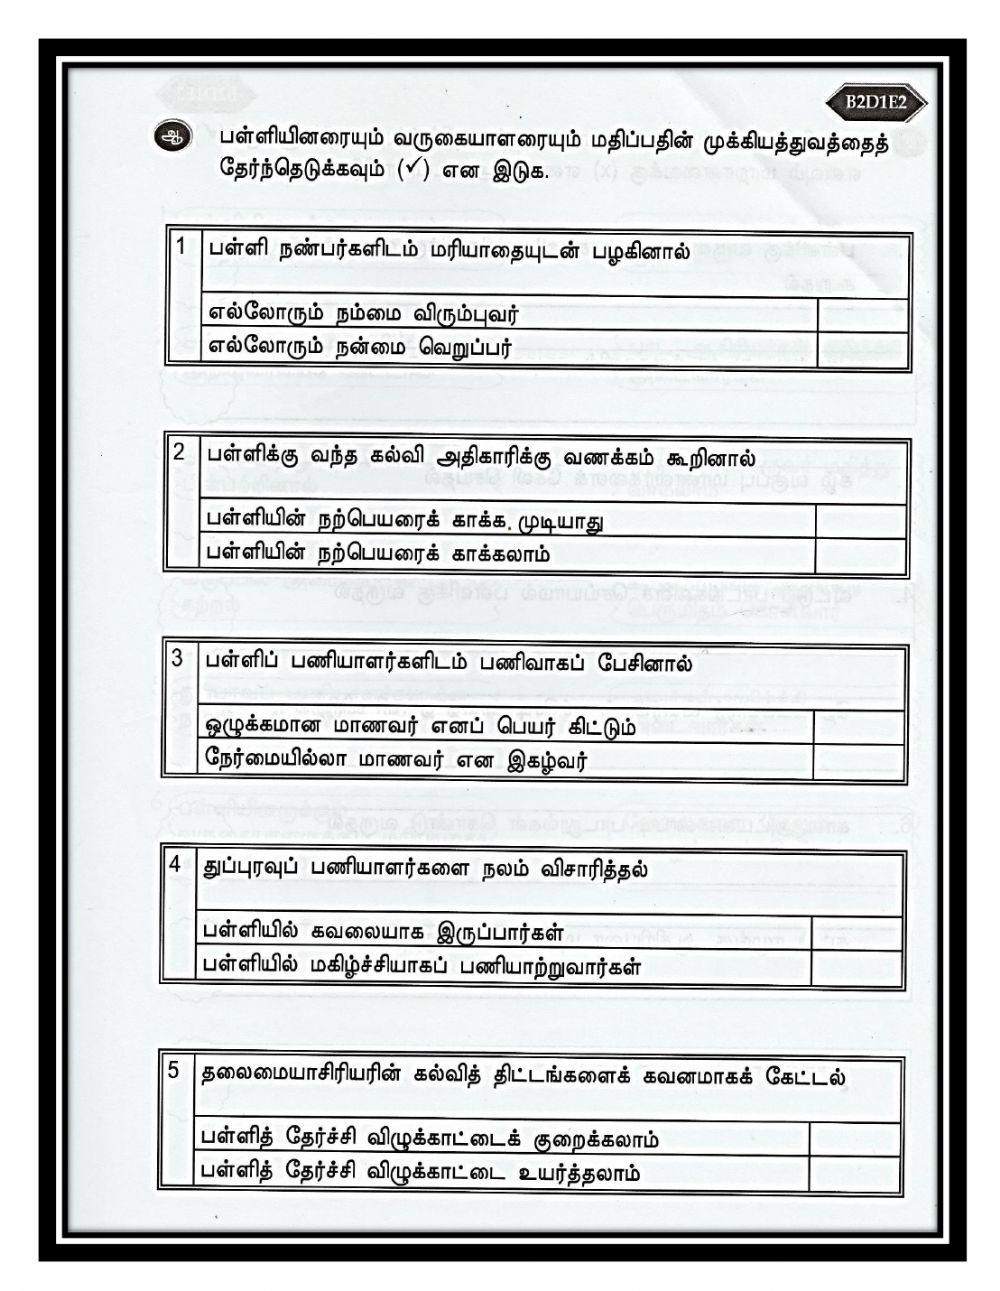 B2D1E2
ஆ பள்ளியினரையும் வருகையாளரையும் மதிப்பதின் முக்கியத்துவத்தைத்
தேர்ந்தெடுக்கவும் (✓) என இடுக.
1 பள்ளி நண்பர்களிடம் மரியாதையுடன் பழகினால்
எல்லோரும் நம்மை விரும்புவர்
எல்லோரும் நன்மை வெறுப்பர்
2 பள்ளிக்கு வந்த கல்வி அதிகாரிக்கு வணக்கம் கூறினால்
பள்ளியின் நற்பெயரைக் காக்க முடியாது
பள்ளியின் நற்பெயரைக் காக்கலாம்
3 பள்ளிப் பணியாளர்களிடம் பணிவாகப் பேசினால்
ஒழுக்கமான மாணவர் எனப் பெயர் கிட்டும்
நேர்மையில்லா மாணவர் என இகழ்வர்
4 துப்புரவுப் பணியாளர்களை நலம் விசாரித்தல்
பள்ளியில் கவலையாக இருப்பார்கள்
பள்ளியில் மகிழ்ச்சியாகப் பணியாற்றுவார்கள்
5 தலைமையாசிரியரின் கல்வித் திட்டங்களைக் கவனமாகக் கேட்டல்
பள்ளித் தேர்ச்சி விழுக்காட்டைக் குறைக்கலாம்
பள்ளித் தேர்ச்சி விழுக்காட்டை உயர்த்தலாம்